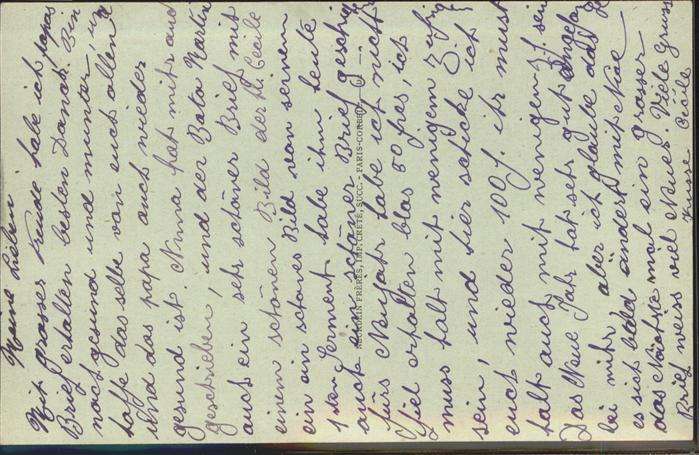 Meine Lieben
Mit grosser freude habe ich papas
Brief erhalten besten Danak. Bin
noch gesund und munter, und
hoffe das selbe von euch allen
und das papa auch wieder
gesund ist Nina hat mir auch
geschieben, und der Bata Martin
auch ein sehr schöner Brief mit
einem schönen Bild der hl. Cecile
ein ein schönes Bild von seinem
1 ten habe ihm heute
auch ein schöner Brief geschig
fürs Neujahr habe ich nicht
viel erhalten blos 50 frcs, ich
muss halt mit wenigem zufri
sein, und hier schicke ich
euch wieder 100 f. ihr must
halt auch mit wenigem zf sein
Das Neue Jahr hat sehr gut angefan
bei mir aber ich glaube das
es sich bald ändert mit Née
das Nächste mal ein grosser
Brief weiss viel Neues. Viele Gruss
Kruse Cécile
BAUDELIN FRÈRES, IMP. CRÉTÉ, SUCC. - PARIS-CORBEIL